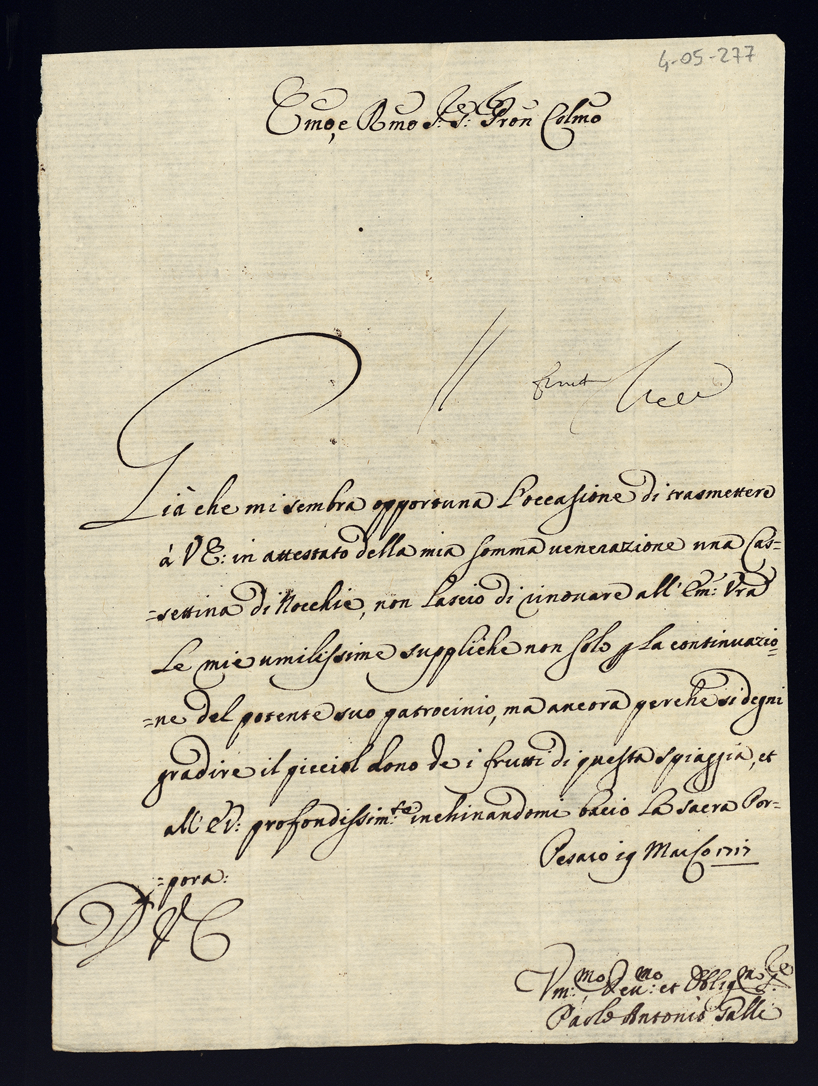 4-05-277
Emo, e Rmo Sr: Sr: Pron Colmo
Già che mi sembra opportuna l'occasione di trasmettere
à V E: in attestato della mia somma venerazione una Cas=
=settina di Nocchie, non lascio di rinovare all' Em: Vra
le mie umilissime suppliche non solo p la continuazio=
=ne del potente suo patrocinio, ma ancora perche si degni
gradire il picciol dono de i frutti di questa spiaggia, et
all' E V: profondissim:te inchinandomi bacio la sacra Por=
=pora:
Pesaro 19 Marso 1717
D V E
Vm:mo Deu:mo et Oblig
Paolo Antonio Galli